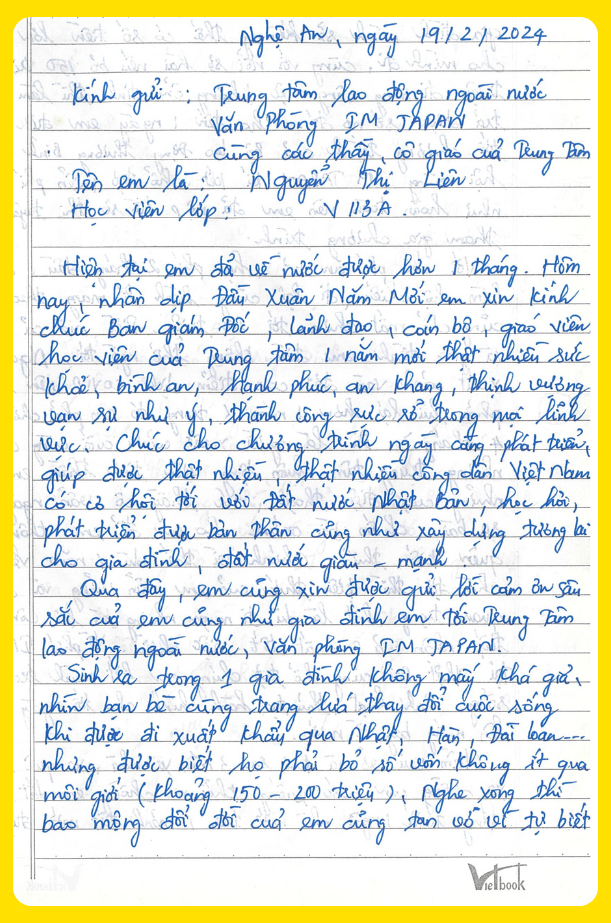 Nghệ An, ngày 19/2/2024
Kính gửi : Trung tâm lao động ngoài nước
Văn Phòng IM JAPAN
cùng các thầy, cô giáo của Trung Tâm
Tên em là : Nguyễn Thị Liên
Học viên lớp : V113A.
Hiện tại em đã về nước được hơn 1 tháng. Hôm
nay, nhân dịp Đầu Xuân Năm Mới em xin kính
chúc Ban giám Đốc, lãnh đạo, cán bộ, giáo viên
học viên của Trung tâm 1 năm mới thật nhiều sức
khoẻ, bình an, hạnh phúc, an khang, thịnh vượng
vạn sự như ý, thành công rực rỡ trong mọi lĩnh
vực. Chúc cho chương trình ngày càng phát triển,
giúp được thật nhiều, thật nhiều công dân Việt Nam
có cơ hội tới với Đất nước Nhật Bản, học hỏi,
phát triển được bản thân cũng như xây dựng tương lai
cho gia đình, đất nước giàu - mạnh.
Qua đây, em cũng xin được gửi lời cảm ơn sâu
sắc của em cũng như gia đình em tới Trung Tâm
lao động ngoài nước, văn phòng IM JAPAN.
Sinh ra trong 1 gia đình không mấy khá giả,
nhìn bạn bè cùng trang lứa thay đổi cuộc sống
khi được đi xuất khẩu qua Nhật, Hàn, Đài loan...
nhưng được biết họ phải bỏ số vốn không ít qua
môi giới (khoảng 150 - 200 triệu), Nghe xong thì
bao mộng đổi đời của em cũng tan vỡ vì tự biết
Vietbook